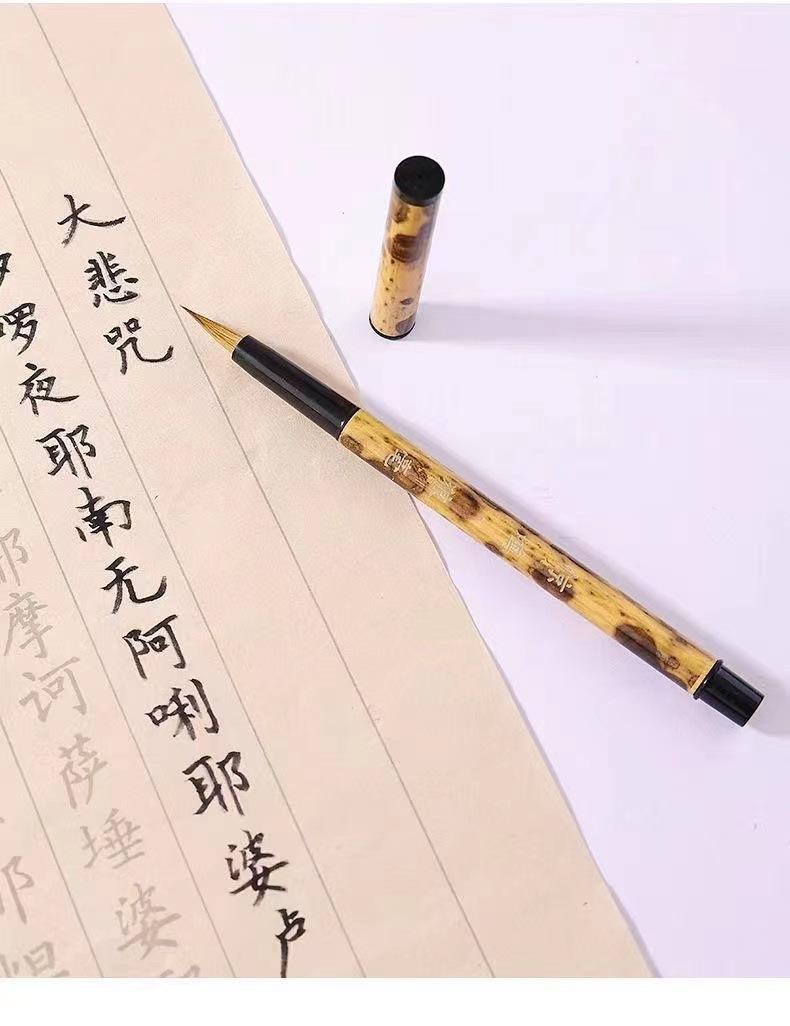 大悲咒
啰夜耶南无阿唎耶婆卢
耶摩诃萨埵婆